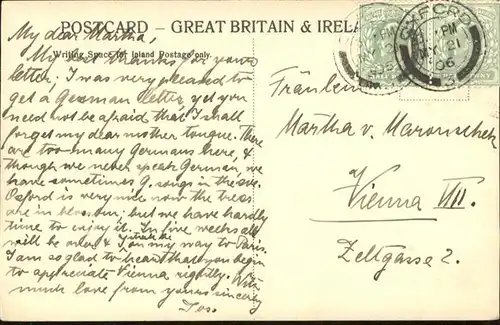 POSTCARD – GREAT BRITAIN & IREL
Writing Space for Inland Postage only.
My dear Martha,
My best thanks for your
letter; I was very pleased to
get a German letter, yet you
need not be afraid that I shall
forget my dear mother tongue. There
are too many Germans here, &
though we never speak German, we
have sometimes G. songs in the eve.
Oxford is very nice now the trees
are in blossom; but we have hardly
time to enjoy it. In five weeks all
will be over & I shall be on my way to Paris.
I am so glad to hear that you begin
to appreciate Vienna rightly. With
much love from yours sincerely
OXFORD
PM
MY 21
06
Fräulein
Martha v.
Vienna VIII.
Zeltgasse 2.